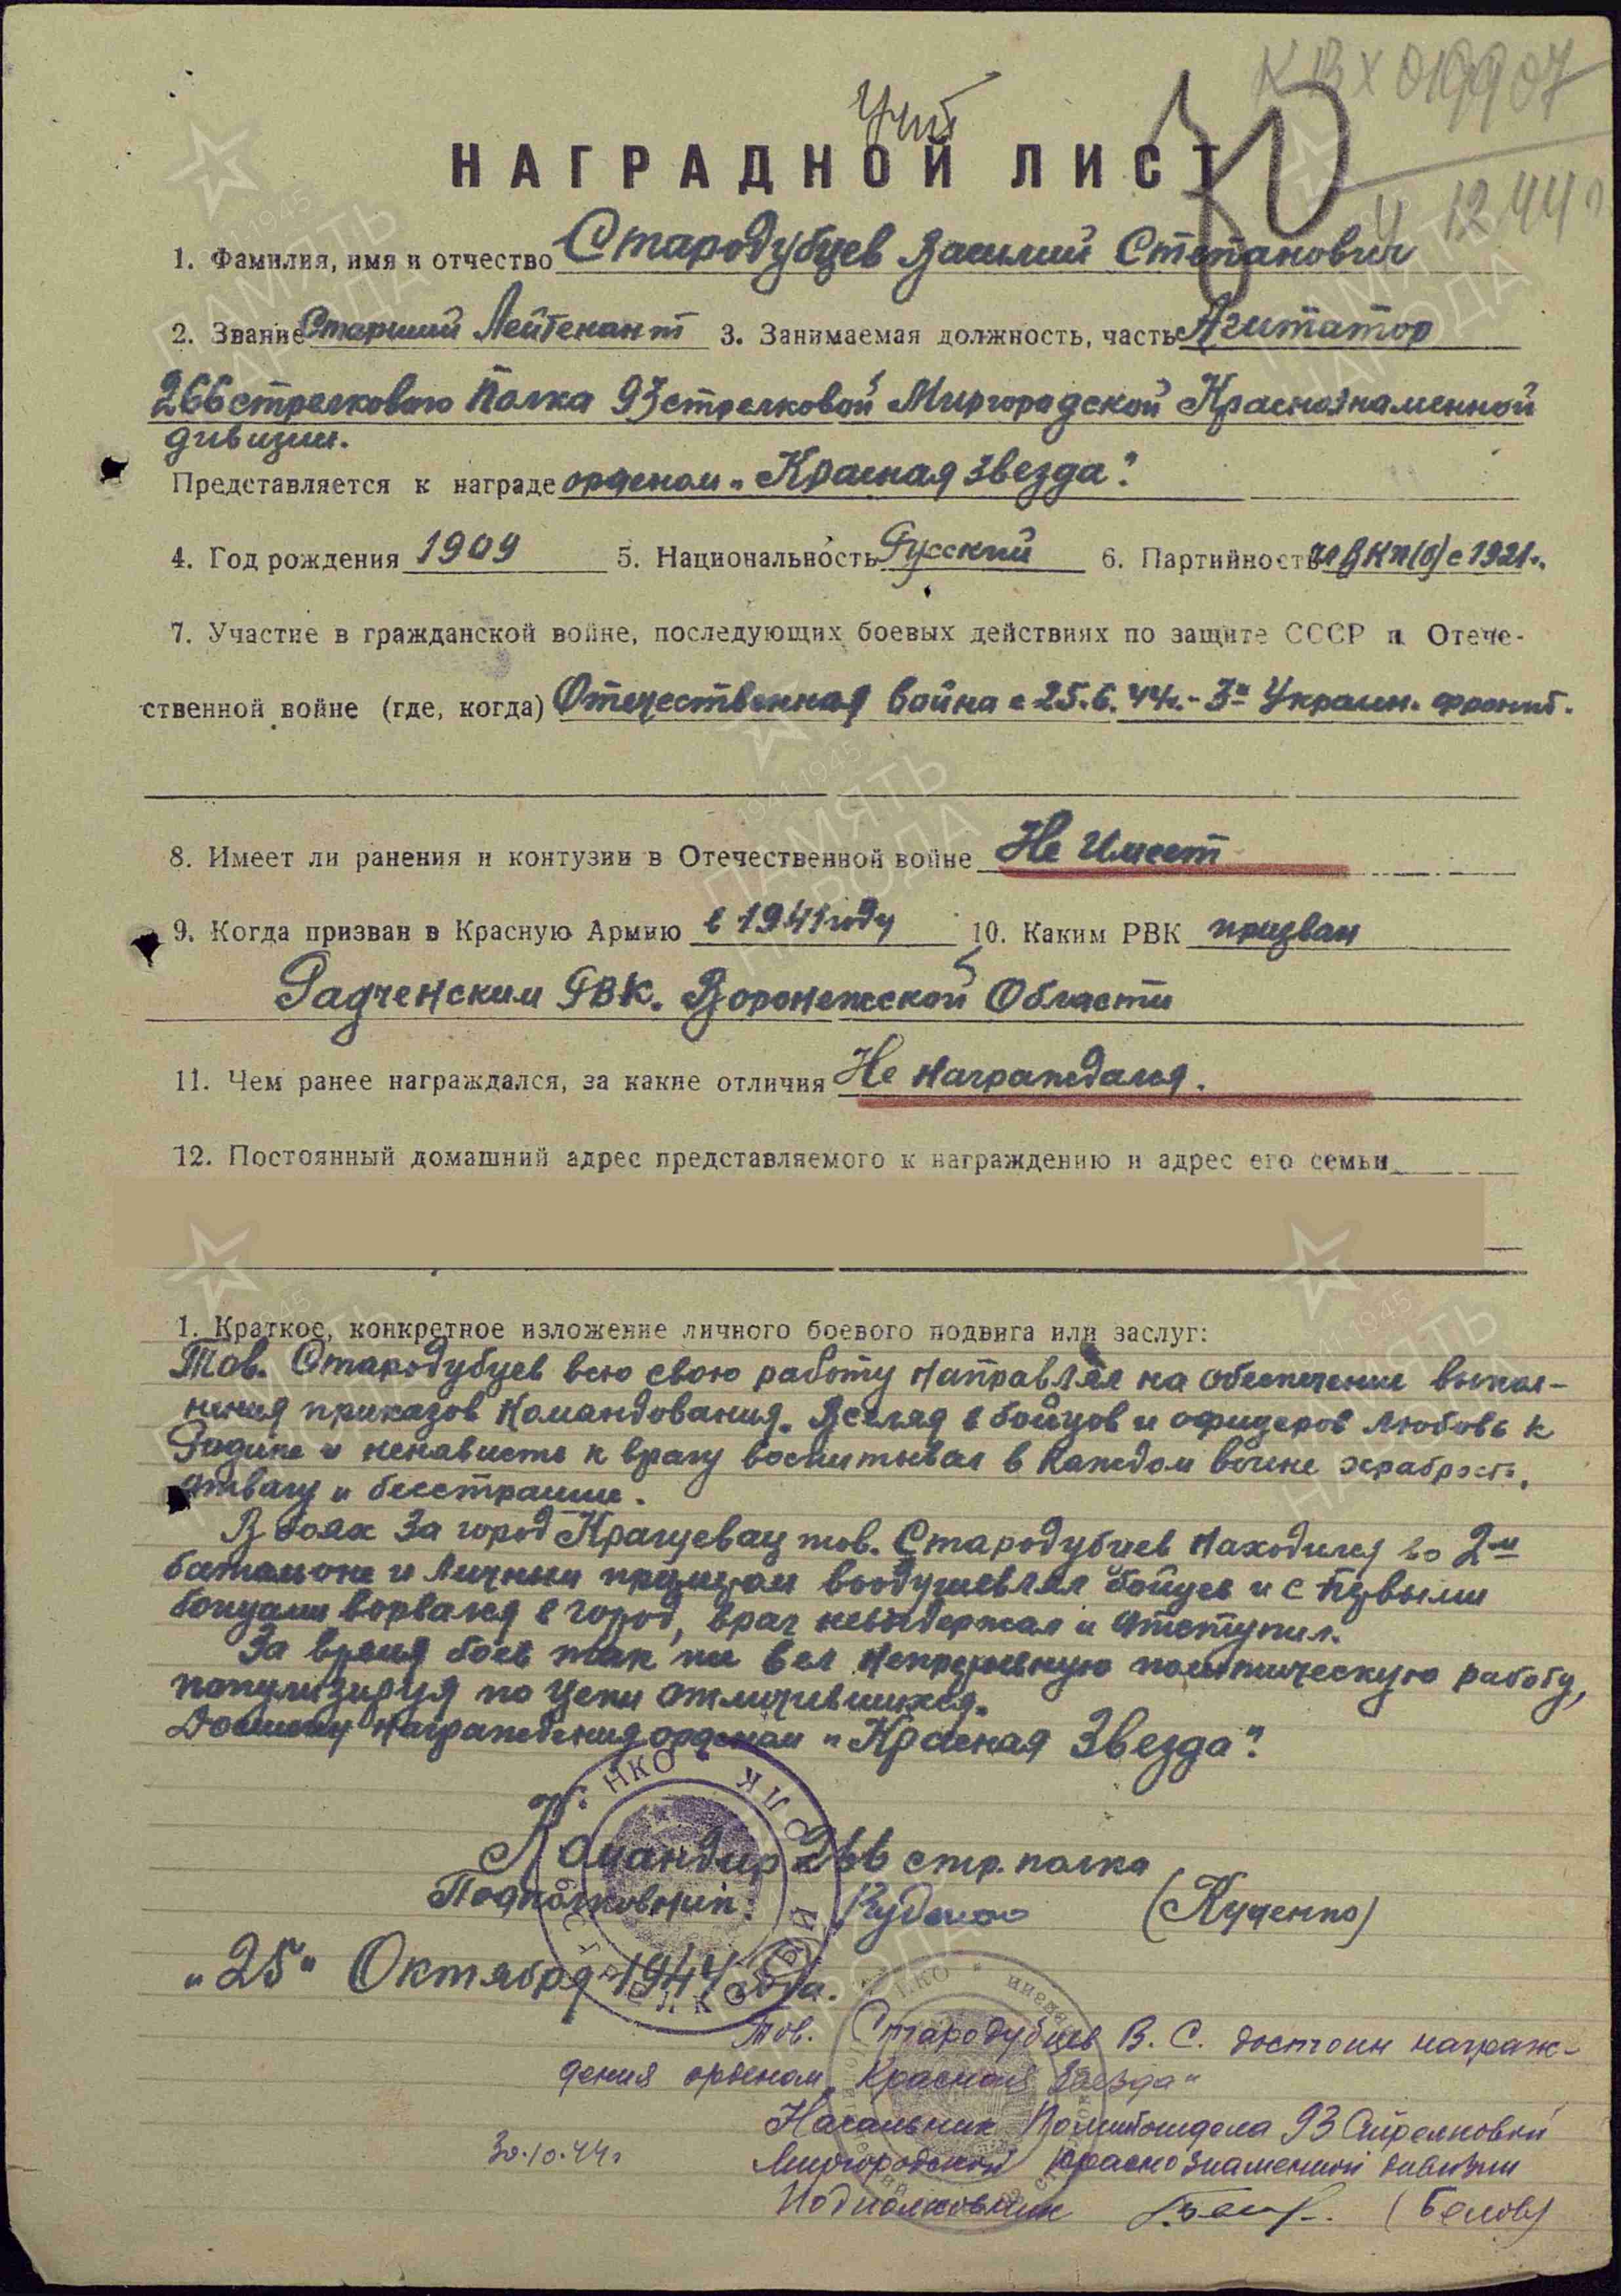 КВХ 019907
4 12 44 г
НАГРАДНОЙ ЛИСТ
1. Фамилия, имя и отчество Стародубцев Василий Степанович
2. Звание Старший Лейтенант 3. Занимаемая должность, часть Агитатор
266 стрелкового Полка 93 стрелковой Миргородской Краснознаменной
дивизии.
Представляется к награде орденом „Красная Звезда".
4. Год рождения 1909 5. Национальность Русский 6. Партийность чл ВКП(б) с 1921г.
7. Участие в гражданской войне, последующих боевых действиях по защите СССР и Отече-
ственной войне (где, когда) Отечественная война с 25.6.44г. - 3й Украин. фронт.
8. Имеет ли ранения и контузии в Отечественной войне Не Имеет
9. Когда призван в Красную Армию в 1941 году 10. Каким РВК призван
Радченским РВК. Воронежской Области
11. Чем ранее награждался, за какие отличия Не награждался.
12. Постоянный домашний адрес представляемого к награждению и адрес его семьи
1. Краткое, конкретное изложение личного боевого подвига или заслуг:
Тов. Стародубцев всю свою работу направлял на обеспечение выпол-
нения приказов Командования. Вселяя в бойцов и офицеров любовь к
Родине и ненависть к врагу воспитывал в каждом воине храбрость,
отвагу и бесстрашие.
В боях за город Крагуевац тов. Стародубцев находился во 2м
батальоне и личным примером воодушевлял бойцов и с первыми
бойцами ворвался в город, враг невыдержал и отступил.
За время боев так же вел непрерывную политическую работу,
популизируя по цепи отличившихся.
Достоин награждения орденом „Красная Звезда".
Командир 266 стр. полка
Подполковник: (Куценко)
„25" Октября 1944 года.
Тов. Стародубцев В. С. достоин награж-
дения орденом „Красная Звезда"
Начальник Политотдела 93 Стрелковой
30.10.44г Миргородской Краснознаменной дивизии
Подполковник (Белов)
НКО
ПОЛК
СТРЕЛКОВЫЙ
ПАМЯТЬ
НАРОДА
1941 1945